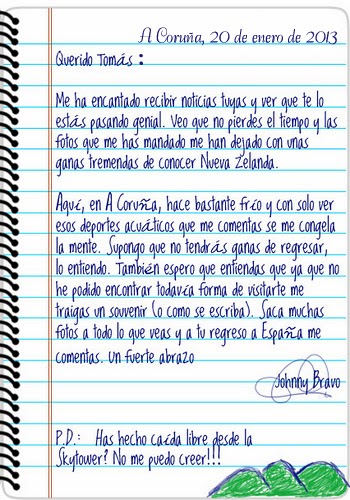 A Coruña, 20 de enero de 2013
Querido Tomás :
Me ha encantado recibir noticias tuyas y ver que te lo
estás pasando genial. Veo que no pierdes el tiempo y las
fotos que me has mandado me han dejado con unas
ganas tremendas de conocer Nueva Zelanda.
Aquí, en A Coruña, hace bastante frío y con solo ver
esos deportes acuáticos que me comentas se me congela
la mente. Supongo que no tendrás ganas de regresar,
lo entiendo. También espero que entiendas que ya que no
he podido encontrar todavía forma de visitarte me
traigas un souvenir (o como se escriba). Saca muchas
fotos a todo lo que veas y a tu regreso a España me
comentas. Un fuerte abrazo
Johnny Bravo
P.D.: Has hecho caída libre desde la
Skytower? No me puedo creer!!!